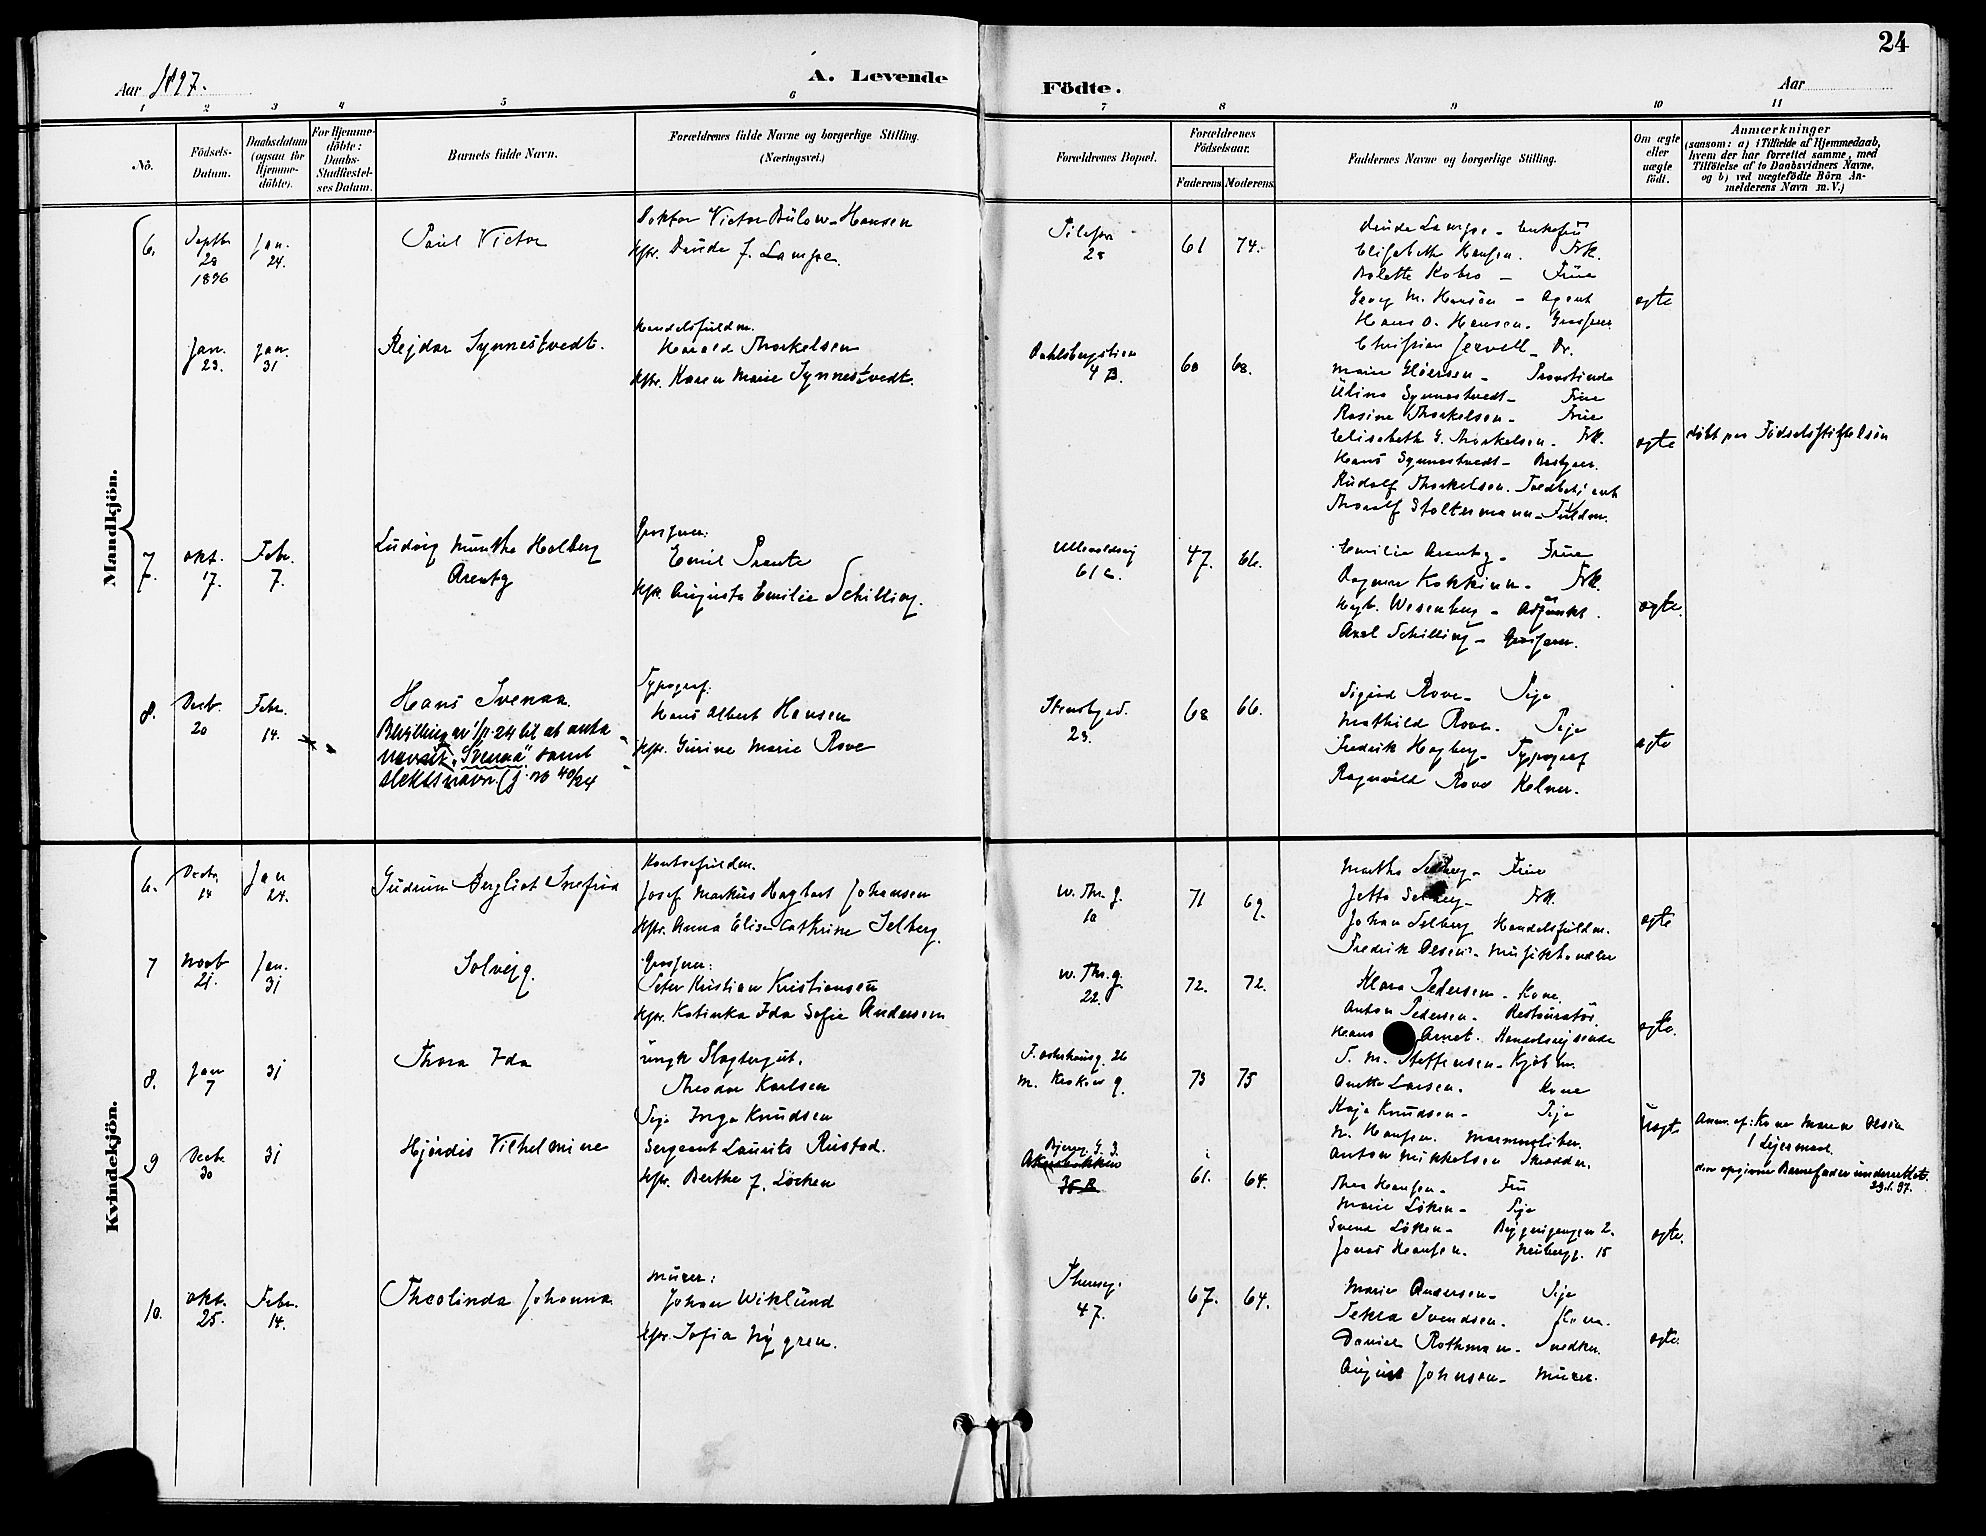 24
Aar 1897.
A. Levende Födte.
Aar
1 2 3 4 5 6 7 8 9 10 11
Nô.
Födsels-Datum.
Daabsdatum (ogsaa for Hjemme-döbte).
For Hjemme-döbte: Daabs-Stadfæstel-ses Datum.
Barnets fulde Navn.
Forældrenes fulde Navne og borgerlige Stilling. (Næringsvei.)
Forældrenes Bopæl.
Forældrenes Födselsaar.
Faderens Moderens
Faddernes Navne og borgerlige Stilling.
Om ægte eller uægte födt.
Anmærkninger (saasom: a) i Tilfælde af Hjemmedaab, hvem der har forrettet samme, med Tilföielse af to Daabsvidners Navne, og b) ved uægtefödte Börn An-melderens Navn m. V.)
Mandkjön.
6. Septb. 28 1896
Jan. 24.
Paul Victor
Doktor Victor Bülow-Hansen
Hstr. Dende J. Lampe.
28
61 74.
Lampe - Enkefru
Elisabeth Hansen. Frk.
Bolette Kobro - Frue
Georg M. Hansen - Agent
Hans O. Hansen. Grosserer
Christian Jervell - Dr.
ægte
Jan. 23.
Jan. 31
Rejdar Synnestvedt.
Handelsfuldm.
Harald Thorkelsen
Hstr. Karen Marie Synnestvedt.
Dahlsbergstien
4 B.
60 68.
Marie - Provstinde
Synnestvedt - Frue
Rosine Thorkelsen - Frue
Elisabeth G. Thorkelsen. Frk.
Hans Synnestvedt -
Rudolf Thorkelsen.
Thoralf Stoltermann - Fuldm.
ægte
döbt paa Födselsstiftelsen
7. Okt. 17.
Febr. 7.
Ludvig Munthe Holberg
Arentz
Grosserer:
Emil
Hstr. Augusta Emilie Schilling.
Ullevoldsvej
61 c.
47. 66.
Emilie Arentz - Frue
Dagmar - Frk.
Wesenberg - Adjunkt.
Axel Schilling - Grosserer.
ægte.
8. Decb. 20
Febr. 14.
Hans Svenaa
Bevilling av 1/2-24 til at anta
navnet "Svenaa" samt
slektsnavn (j. no 40/24
Typograf:
Hans Albert Hansen
Hstr. Gurine Marie Rove
Stensbgd.
23.
68 66.
Sigrid Rove - Pige
Mathild Rove. Pige
Fredrik Hagberg - Typograf
Ragnvald Rove Kelner.
ægte
Kvindekjön.
6. Decbr. 14
Jan 24.
Gudrun Bergliot Snefrid
Kontorfuldm.
Josef Markus Hagbart Johansen
Hstr. Anna Elise Cathrine Selberg.
W. Thr. g.
10
71 69.
Martha Selberg - Frue
Jetta Selberg - Frk.
Johan Selberg Handelsfuldm.
Fredrik Olsen - Musikhandler
ægte
7 Novb 21.
Jan. 31
Solvejg.
Grosserer:
Peter Kristian Kristiansen
Hstr. Katinka Ida Sofie Andersen
W. Thr. g.
22.
72. 72.
Klara Pedersen - Kone.
Anton Pedersen - Restauratør
Hans Arnet. Handelsrejsende
ægte.
8. Jan 7
31
Thora Ida
ungk. Slagtergut.
Theodor Karlsen
Pige Inga Knudsen
26
73 75
S. M. Steffensen - Kjöbm.
Anette Larsen. Kone
Kaja Knudsen - Pige
N. Hansen. Marmorsliber.
Anton Mikkelsen Skrædder.
uægte
Anm. af: Kone Maren Olsen
den opgivne Barnefader underrettet.
29.1.97.
9 Decbr 30
31
Hjördis Vilhelmine
Sergeant Laurits Rustad.
Hstr. Berthe J. Löcken
Bjerg. G. 3.
Akersbakken
35 B
61. 64.
Thea Hansen - Fru
Marie Löken - Pige
Svend Löken - 2.
Jonas Hansen. Neubergg. 15
ægte.
10. Okt. 25.
Febr. 14.
Theolinda Johanna
Murer:
Johan Wiklund
Hstr. Sofia Nygren.
Theresesg.
47.
67. 64.
Marie Andersen - Pige
Tekla Svendsen. Kone.
Daniel Rothman - Snedker.
August Johnson - Murer.
ægte.